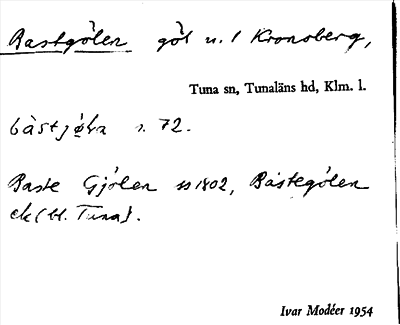 Bastgölen göl n. l Kronoberg,
Tuna sn, Tunaläns hd, Klm. l.
bàstjø̀ln s. 72.
Baste Gjölen ss 1802, Bastegölen
ek (bl. Tuna).
Ivar Modéer 1954